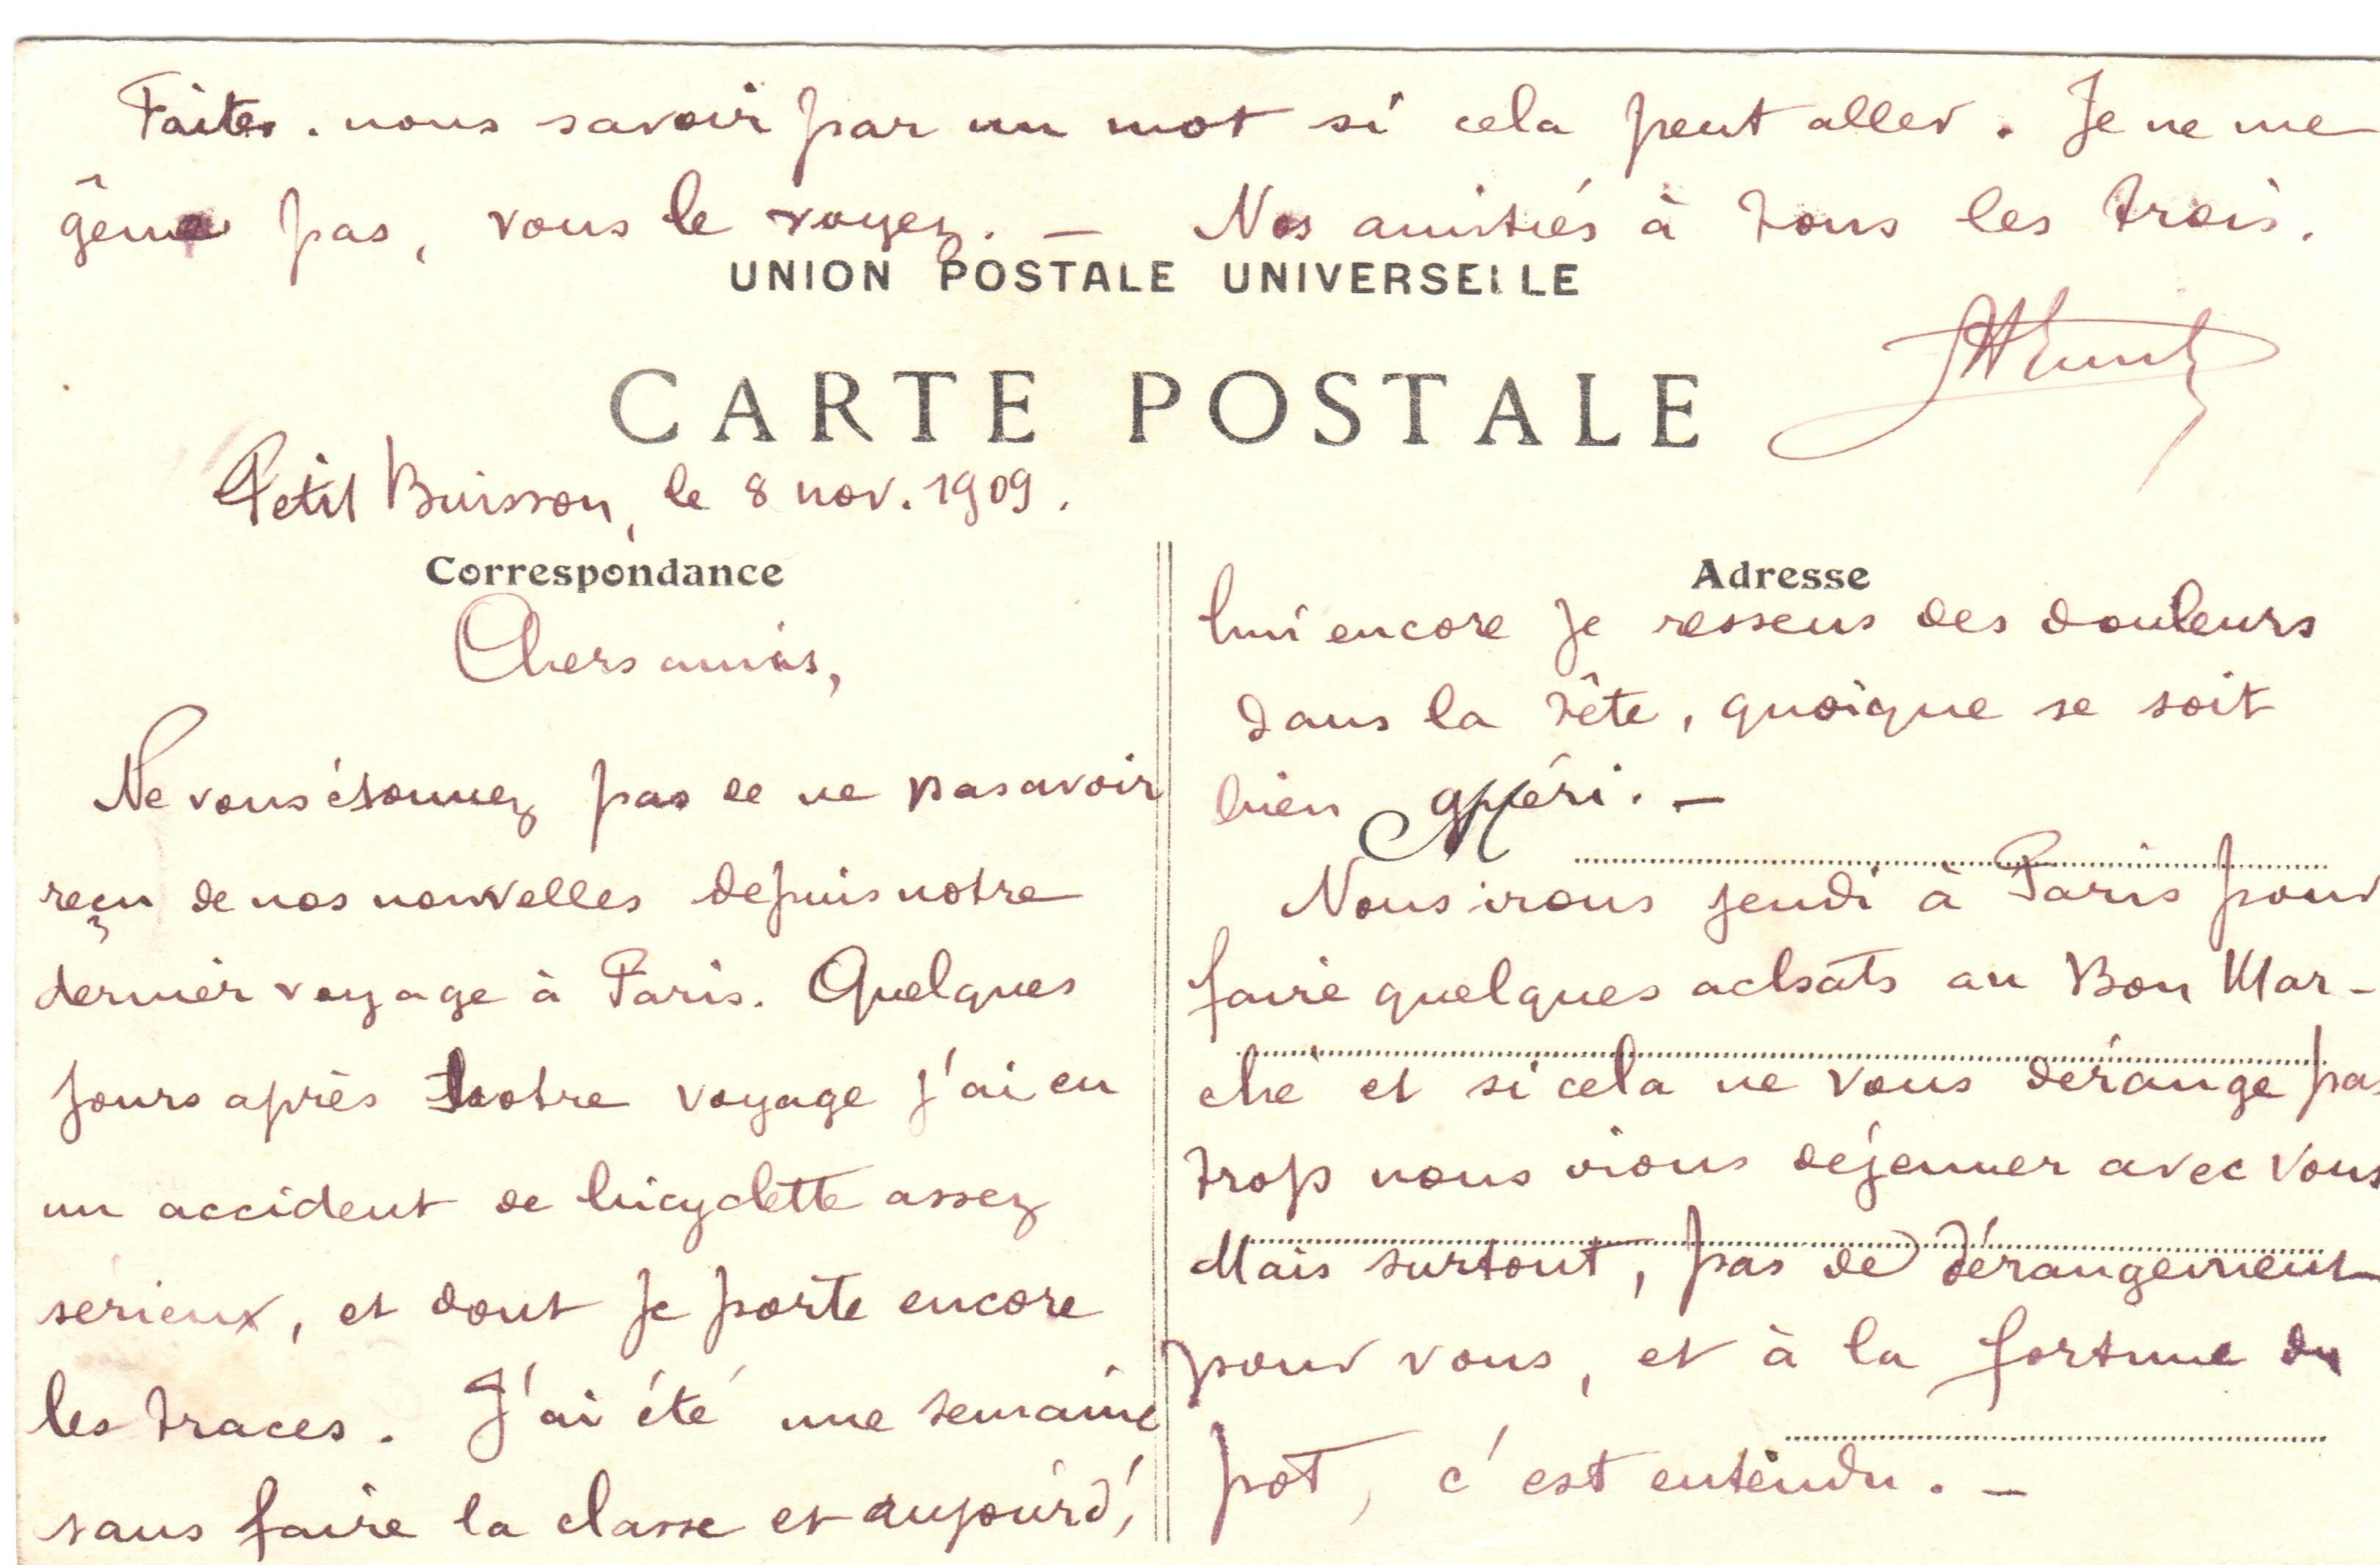 Faites-nous savoir par un mot si cela peut aller. Je ne me
gêne pas, vous le voyez. — Nos amitiés à tous les trois.
UNION POSTALE UNIVERSELLE
CARTE POSTALE
Petit Buisson, le 8 nov. 1909.
Correspondance
Chers amis,
Ne vous étonnez pas de ne pas avoir
reçu de nos nouvelles depuis notre
dernier voyage à Paris. Quelques
jours après notre voyage j'ai eu
un accident de bicyclette assez
sérieux, et dont je porte encore
les traces. J'ai été une semaine
sans faire la classe et aujourd'
Adresse
hui encore je ressens des douleurs
dans la tête, quoique se soit
bien guéri. —
M
Nous irons jeudi à Paris pour
faire quelques achats au Bon Mar-
ché et si cela ne vous dérange pas
trop nous irions déjeuner avec vous
Mais surtout, pas de dérangement
pour vous, et à la fortune du
pot, c'est entendu. —